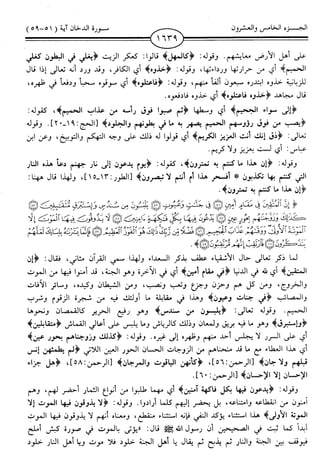 الجـزء الخامس والعشرون
١٦٣٩
سـورة الدخان آية (٥١-٥٩)
على أهل الأرض معايشهم. وقوله: ﴿كالمهل﴾ قالوا: كعكر الزيت ﴿يغلي في البطون كغلي
الحميم﴾ أي من حرارتها ورداءتها، وقوله: ﴿خذوه﴾ أي الكافر، وقد ورد أنه تعالى إذا قال
للزبانية خذوه ابتدره سبعون ألفاً منهم، وقوله: ﴿فاعتلوه﴾ أي سوقوه سحباً ودفعاً في ظهره،
قال مجاهد ﴿خذوه فاعتلوه﴾ أي خذوه فادفعوه.
﴿إلى سواء الجحيم﴾ أي وسطها ﴿ثم صبوا فوق رأسه من عذاب الحميم﴾، كقوله:
﴿يصب من فوق رؤوسهم الحميم يصهر به ما في بطونهم والجلود﴾ [الحج: ١٩-٢٠]. وقوله
تعالى: ﴿ذق إنك أنت العزيز الكريم﴾ أي قولوا له ذلك على وجه التهكم والتوبيخ، وعن ابن
عباس: أي لست بعزيز ولا كريم.
وقوله: ﴿إن هذا ما كنتم به تمترون﴾، كقوله: ﴿يوم يدعون إلى نار جهنم دعاً هذه النار
التي كنتم بها تكذبون * أفسحر هذا أم أنتم لا تبصرون﴾ [الطور: ١٣-١٥]، ولهذا قال ههنا:
﴿إن هذا ما كنتم به تمترون﴾.
إِنَّ الْمُتَّقِينَ فِي مَقَامٍ أَمِينٍ ۝ فِي جَنَّاتٍ وَعُيُونٍ ۝ يَلْبَسُونَ مِن سُندُسٍ وَإِسْتَبْرَقٍ مُّتَقَابِلِينَ ۝
كَذَٰلِكَ وَزَوَّجْنَاهُم بِحُورٍ عِينٍ ۝ يَدْعُونَ فِيهَا بِكُلِّ فَاكِهَةٍ آمِنِينَ ۝ لَا يَذُوقُونَ فِيهَا الْمَوْتَ إِلَّا
الْمَوْتَةَ الْأُولَىٰ وَوَقَاهُمْ عَذَابَ الْجَحِيمِ ۝ فَضْلًا مِّن رَّبِّكَ ذَٰلِكَ هُوَ الْفَوْزُ الْعَظِيمُ ۝ فَإِنَّمَا يَسَّرْنَاهُ بِلِسَانِكَ لَعَلَّهُمْ
يَتَذَكَّرُونَ ۝ فَارْتَقِبْ إِنَّهُم مُّرْتَقِبُونَ ۝
لما ذكر تعالى حال الأشقياء عطف بذكر السعداء ولهذا سمي القرآن مثاني، فقال: ﴿إن
المتقين﴾ أي لله في الدنيا ﴿في مقام أمين﴾ أي في الآخرة وهو الجنة، قد أمنوا فيها من الموت
والخروج، ومن كل هم وحزن وجزع وتعب ونصب، ومن الشيطان وكيده، وسائر الآفات
والمصائب ﴿في جنات وعيون﴾ وهذا في مقابلة ما أولئك فيه من شجرة الزقوم وشرب
الحميم. وقوله تعالى: ﴿يلبسون من سندس﴾ وهو رفيع الحرير كالقمصان ونحوها
﴿وإستبرق﴾ وهو ما فيه بريق ولمعان وذلك كالرياش وما يلبس على أعالي القماش ﴿متقابلين﴾
أي على السرر لا يجلس أحد منهم وظهره إلى غيره. وقوله: ﴿كذلك وزوجناهم بحور عين﴾
أي هذا العطاء مع ما قد منحناهم من الزوجات الحسان الحور العين اللاتي ﴿لم يطمثهن إنس
قبلهم ولا جان﴾ [الرحمن: ٥٦]، ﴿كأنهن الياقوت والمرجان﴾ [الرحمن: ٥٨]، ﴿هل جزاء
الإحسان إلا الإحسان﴾ [الرحمن: ٦٠].
وقوله: ﴿يدعون فيها بكل فاكهة آمنين﴾ أي مهما طلبوا من أنواع الثمار أحضر لهم، وهم
آمنون من انقطاعه وامتناعه، بل يحضر إليهم كلما أرادوا. وقوله: ﴿لا يذوقون فيها الموت إلا
الموتة الأولى﴾ هذا استثناء يؤكد النفي فإنه استثناء منقطع، ومعناه أنهم لا يذوقون فيها الموت
أبداً كما ثبت في الصحيحين أن رسول الله ﷺ قال: «يؤتى بالموت في صورة كبش أملح
فيوقف بين الجنة والنار ثم يذبح ثم يقال يا أهل الجنة خلود فلا موت ويا أهل النار خلود